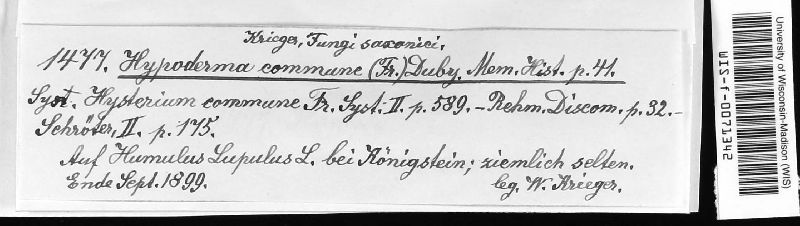 Krieger, Fungi saxonici.
1477. Hypoderma commune (Fr.) Duby. Mem. Hist. p. 41.
Syst. Hysterium commune Fr. Syst. II. p. 589. – Rehm. Discom. p. 32. –
Schröter, II. p. 175.
Auf Humulus Lupulus L. bei Königstein; ziemlich selten.
Ende Sept. 1899. leg. W. Krieger.
University of Wisconsin-Madison (WIS)
WIS-f-0071342